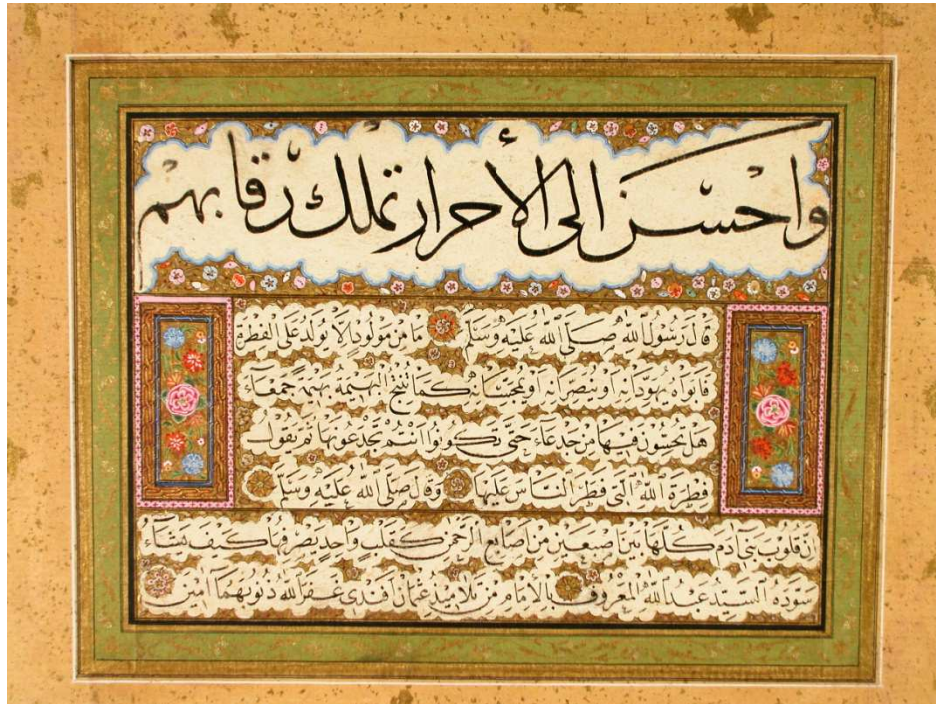 واحسن الى الأحرار تملك رقابهم
قال رسول الله صلى الله عليه وسلم ما من مولود الا يولد على الفطرة
فابواه يهودانه او ينصرانه او يمجسانه كما تنتج البهيمة بهيمة جمعاء
هل تحسون فيها من جدعاء حتى تكونوا انتم تجدعونها ثم يقول
فطرة الله التى فطر الناس عليها وقال صلى الله عليه وسلم
ان قلوب بنى ادم كلها بين اصبعين من اصابع الرحمن كقلب واحد يصرفها كيف يشاء
سوده السيد عبد الله المعروف بالامام من تلاميذ عثمان افندى غفر الله ذنوبهما امين